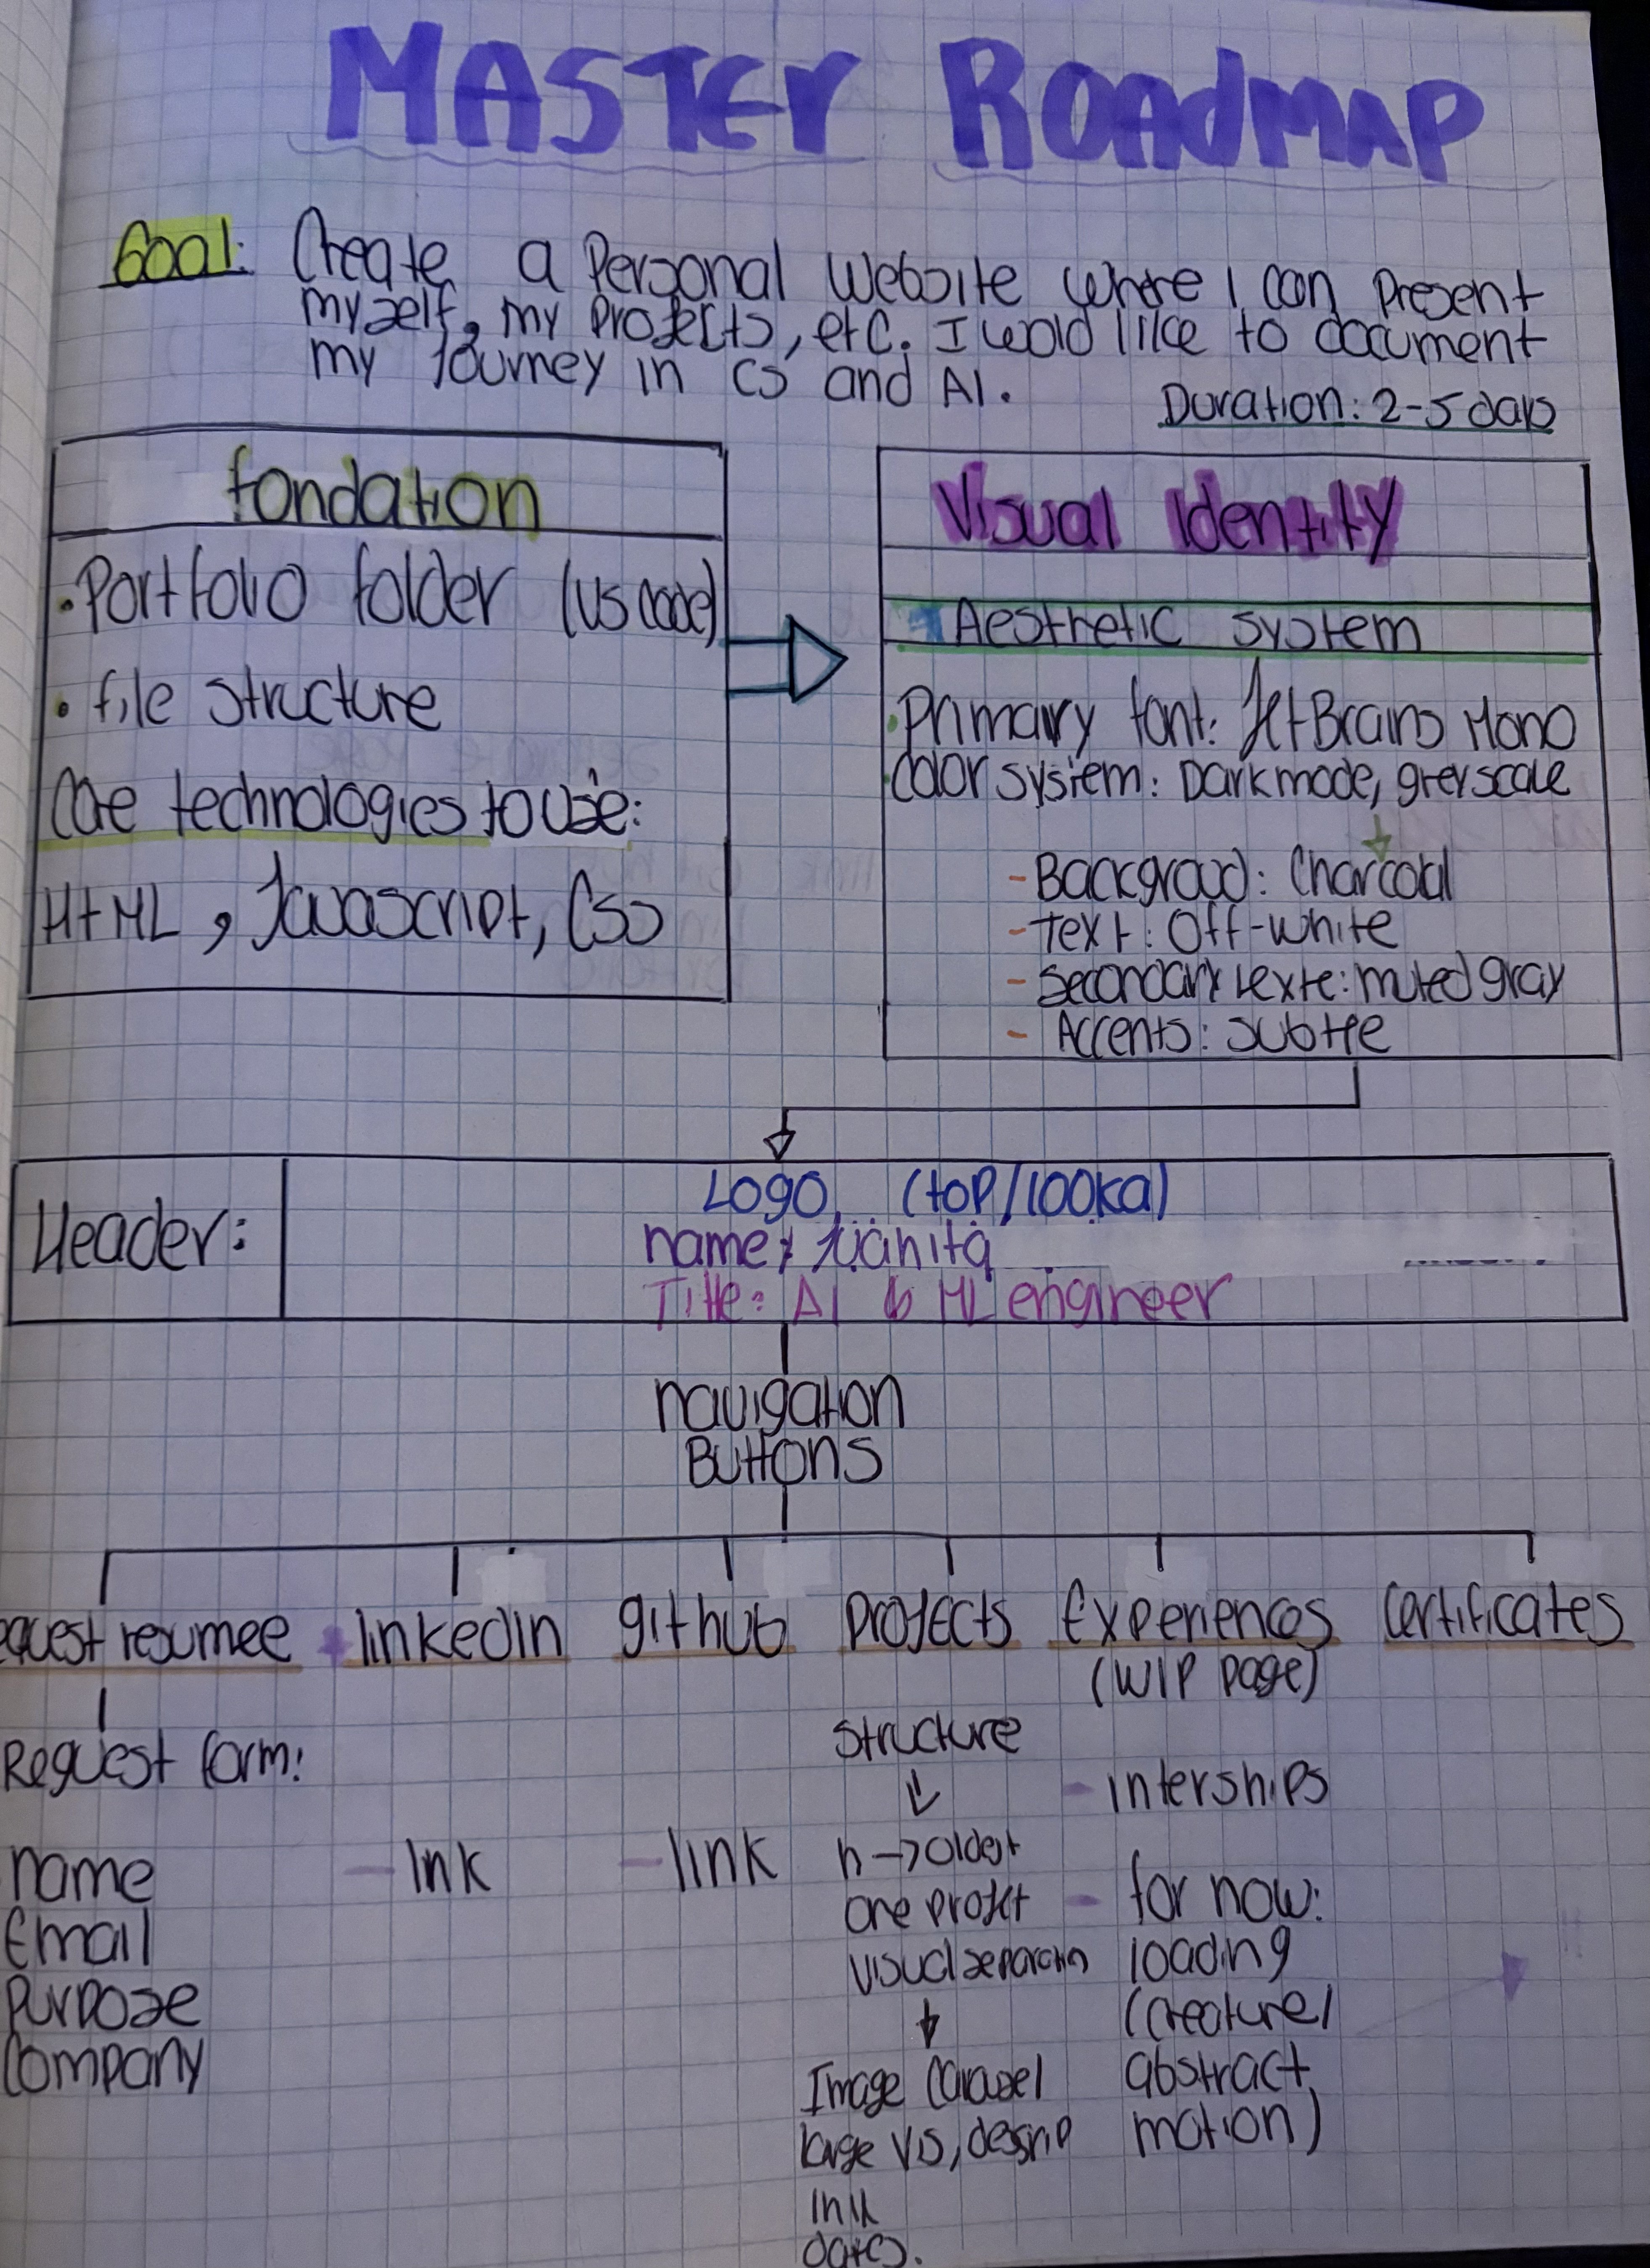 MASTER ROADMAP
Goal: Create a Personal Website where I can present
myself, my projects, etc. I wold like to document
my journey in CS and AI.
Duration: 2-5 days
fondation
• Portfolio folder (VS Code)
• file structure
Core technologies to use:
HTML, Javascript, CSS
Visual Identity
Aesthetic system
• Primary font: JetBrains Mono
• color system: Dark mode, greyscale
- Background: Charcoal
- Text: Off-white
- Secondary texte: muted gray
- Accents: subtle
Header:
Logo (top/
name: Juanita
Title: AI & ML engineer
navigation
Buttons
equest resumee
linkedin
github
projects
Experiences
(WIP page)
certificates
Request form:
name
Email
Purpose
Company
- link
- link
structure
n → oldest
one projet
visual separation
Image Carousel
large vis, descrip
link
dates.
- interships
- for now:
loading
(creature/
abstract
motion)